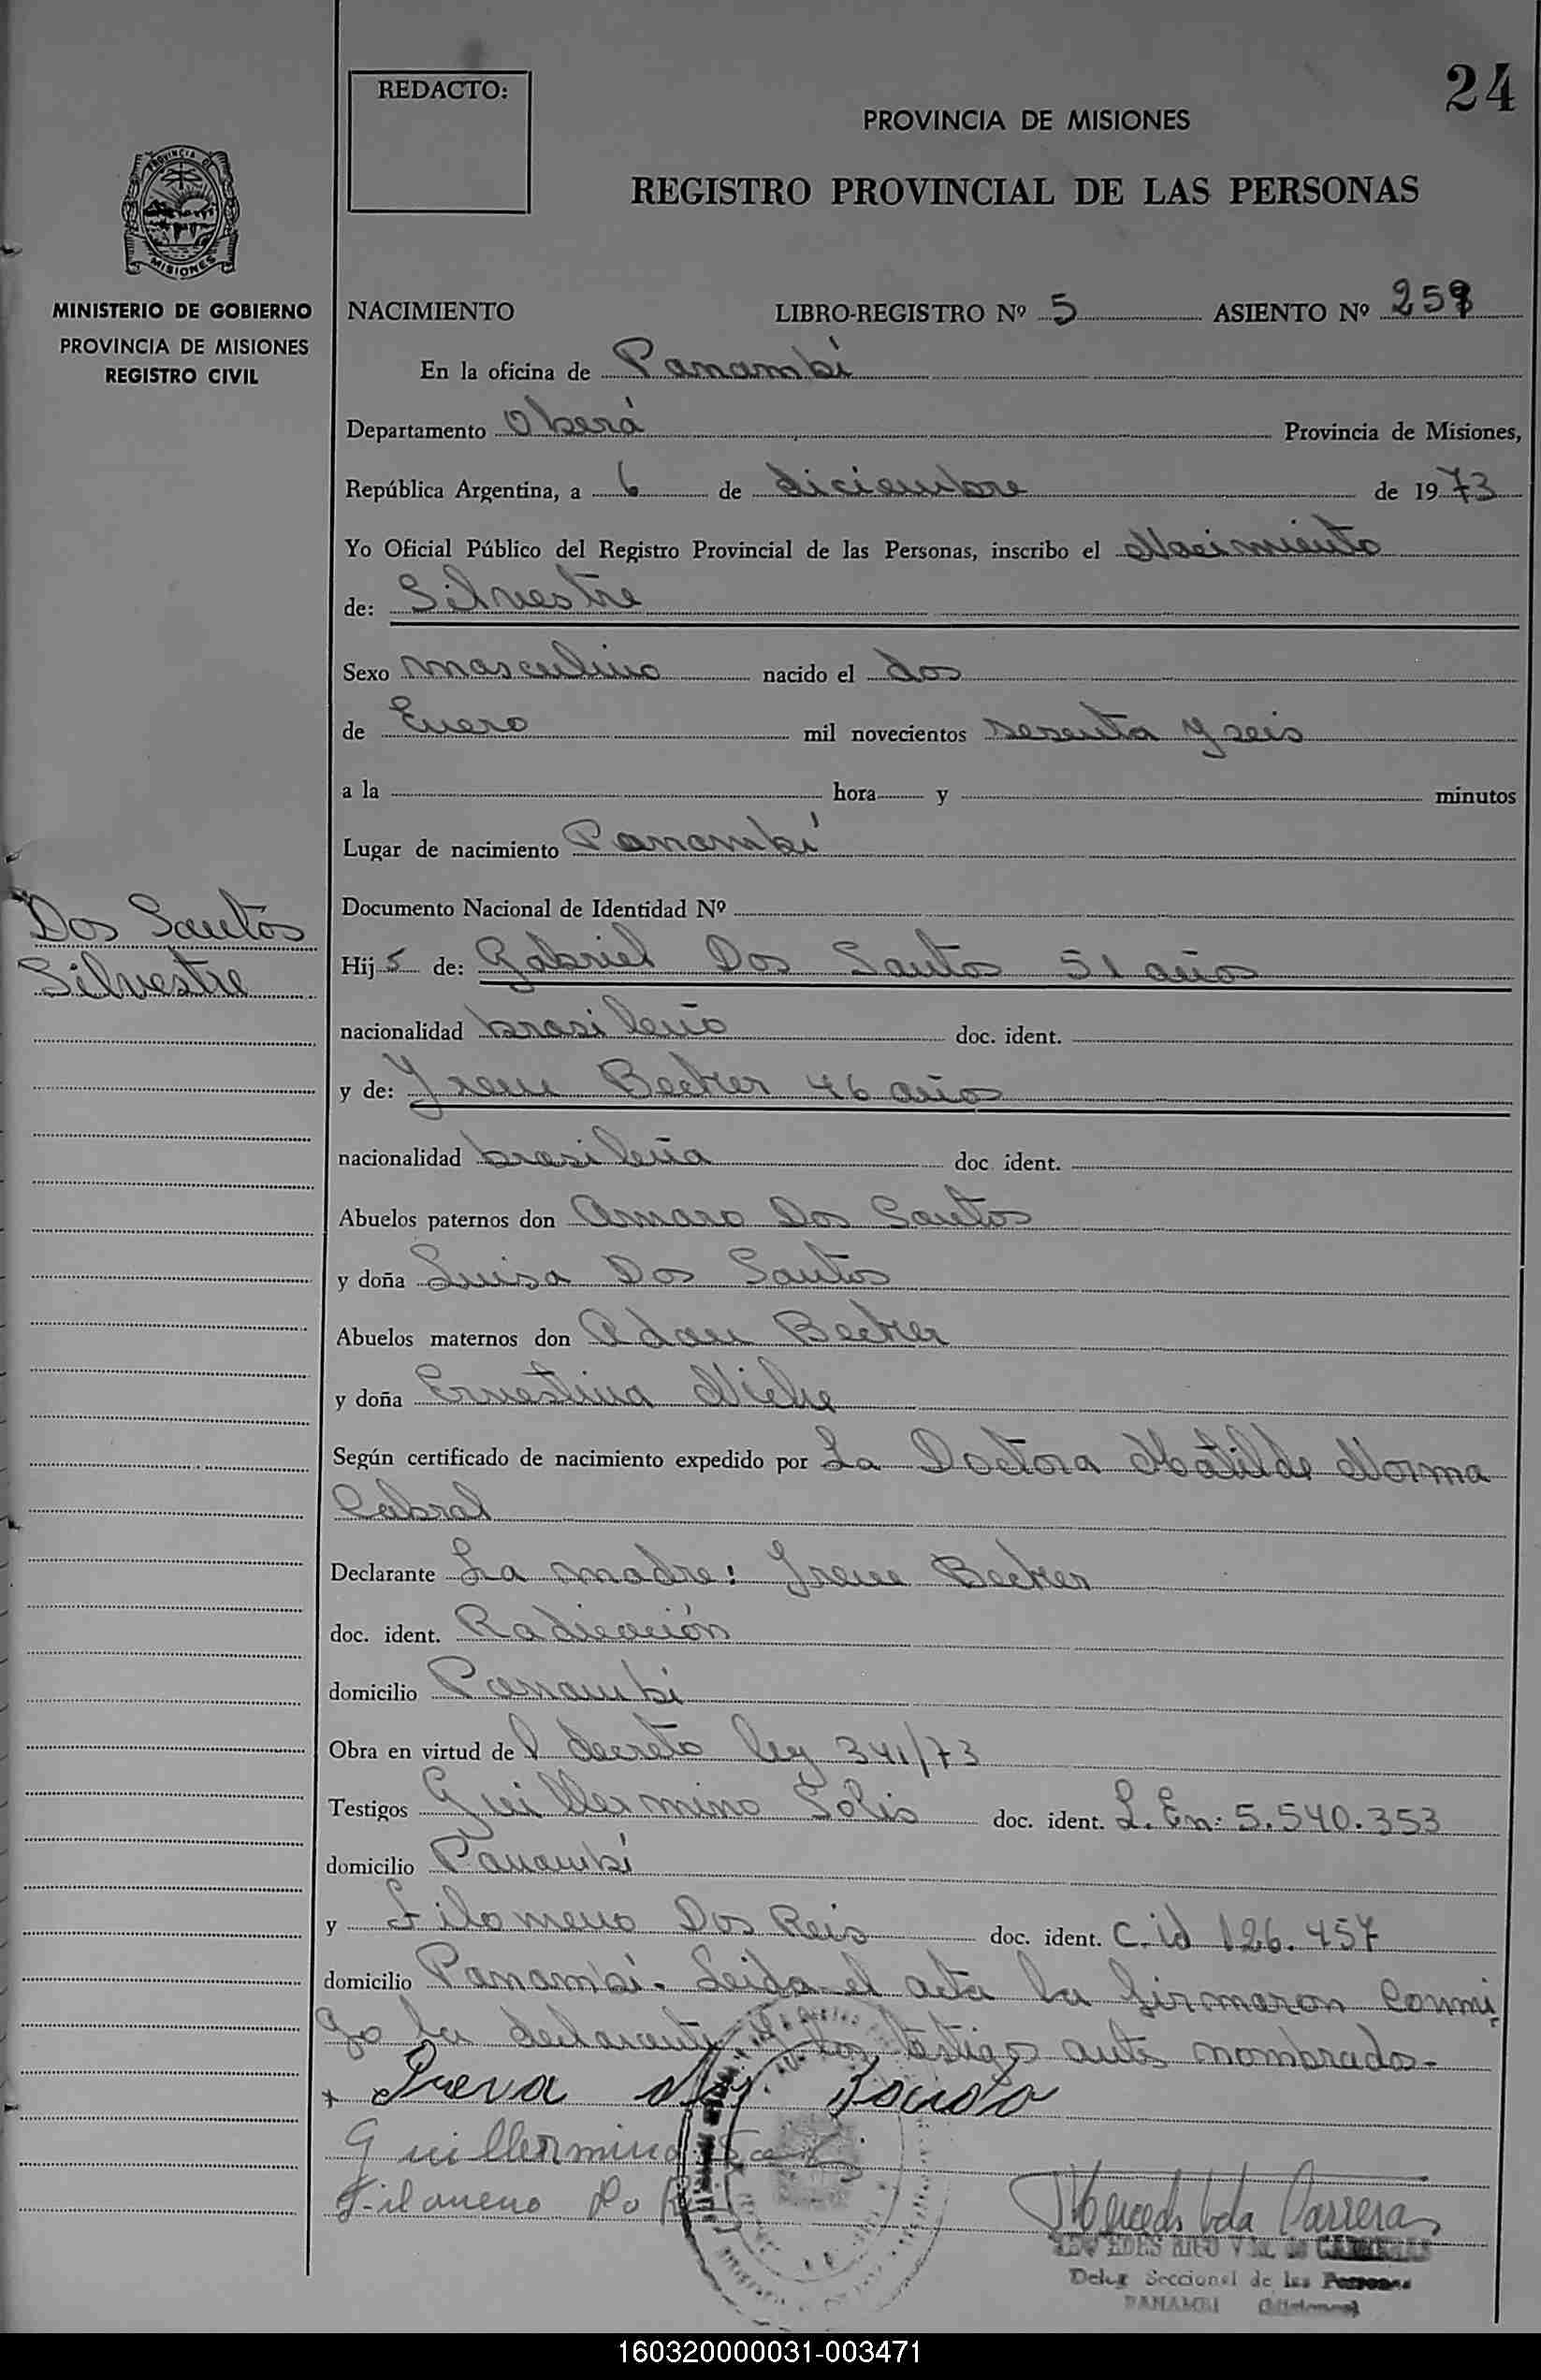 24
REDACTO:
PROVINCIA DE MISIONES
REGISTRO PROVINCIAL DE LAS PERSONAS
PROVINCIA DE
MISIONES
MINISTERIO DE GOBIERNO
PROVINCIA DE MISIONES
REGISTRO CIVIL
NACIMIENTO LIBRO-REGISTRO Nº 5 ASIENTO Nº 259
En la oficina de Panambí
Departamento Oberá Provincia de Misiones,
República Argentina, a 6 de diciembre de 1973
Yo Oficial Público del Registro Provincial de las Personas, inscribo el Nacimiento
de: Silvestre
Sexo masculino nacido el dos
de Enero mil novecientos sesenta y seis
a la hora y minutos
Lugar de nacimiento Panambí
Documento Nacional de Identidad Nº
Dos Santos
Silvestre
Hij de: Gabriel Dos Santos 51 años
nacionalidad brasileño doc. ident.
y de: Yrene Becker 46 años
nacionalidad brasileña doc ident.
Abuelos paternos don Amaro Dos Santos
y doña Luisa Dos Santos
Abuelos maternos don Adan Becker
y doña Ernestina
Según certificado de nacimiento expedido por La Doctora Matilde Norma
Cabral
Declarante La madre: Yrene Becker
doc. ident. Radicación
domicilio Panambi
Obra en virtud del decreto ley 341/73
Testigos Guillermino Solis doc. ident. L. En: 5.540.353
domicilio Panambí
y Filomeno Dos Reis doc. ident. C. id 126.457
domicilio Panambí. Leida el acta la firmaron conmi
go la declarante y los testigos antes nombrados-
Guillermino
Filomeno Do
Mercedes Carreras
Deleg Seccional de las Personas
PANAMBI (Misiones)
160320000031-003471